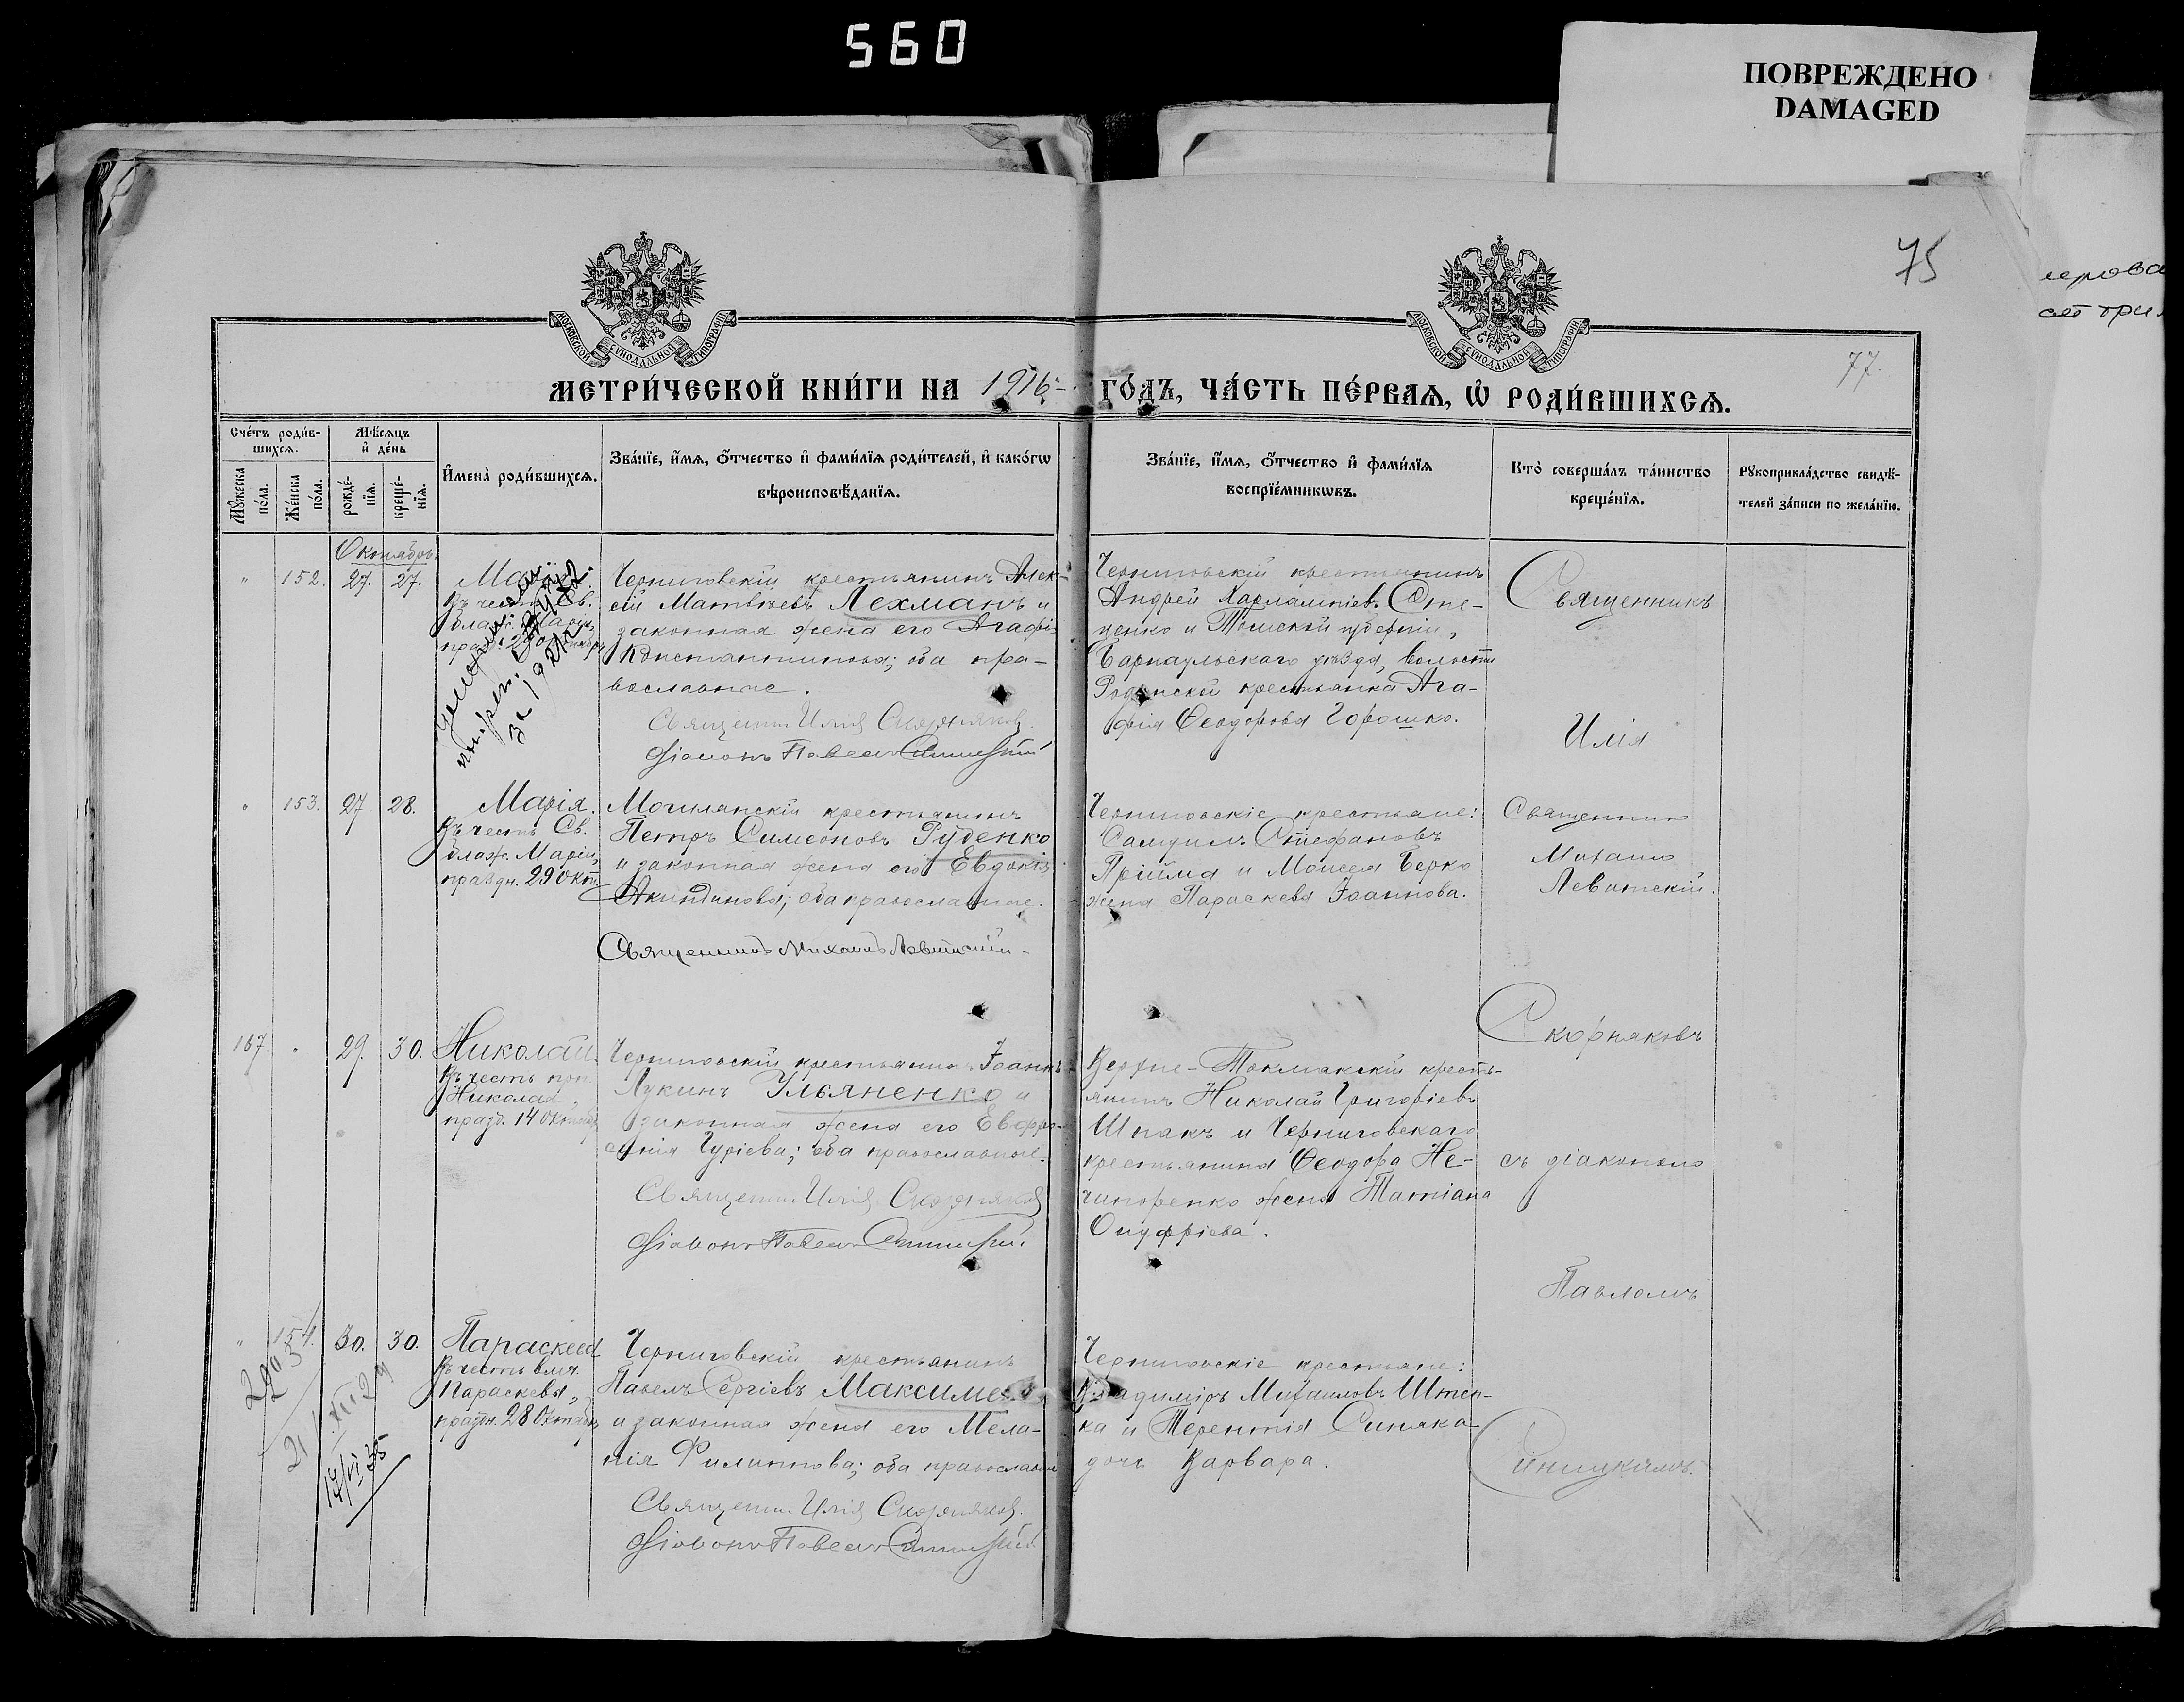 560
ПОВРЕЖДЕНО
DAMAGED
75
77.
МОСКОВСКОЙ СУНОДАЛЬНОЙ ТИПОГРАФІИ
МОСКОВСКОЙ СУНОДАЛЬНОЙ ТИПОГРАФІИ
МЕТРИ́ЧЕСКОЙ КНИ́ГИ НА 1916 ГО́ДЪ, ЧА́СТЬ ПЕ́РВАѦ, Ѡ҆ РОДИ́ВШИХСѦ.
Сче́тъ роди́в-
шихсѧ.
Мѣ́сѧцъ
и҆ де́нь
Мꙋ́жеска
по́ла.
Же́нска
по́ла.
рожде́-
нїѧ.
креще́-
нїѧ.
И҆мена̀ роди́вшихсѧ.
Зва́нїе, и҆́мѧ, ѻ҆́тчество и҆ фами́лїѧ роди́телей, и҆ како́гѡ
вѣроисповѣ́данїѧ.
Зва́нїе, и҆́мѧ, ѻ҆́тчество и҆ фами́лїѧ
воспрїе́мникѡвъ.
Кто̀ соверша́лъ та́инство
креще́нїѧ.
Рꙋкоприкла́дство свидѣ́-
телей за́писи по жела́нїю.
Октябрь
" 152. 27. 27.
Въ честь Св.
Черниговскій крестьянинъ Алек-
сій Матвѣевъ Лехманъ и
законная жена его Агафі-
Константинова; оба пра-
вославные.
Священн. Илія Скорняковъ.
Діаконъ Павелъ Синицкій
за 1921 г.
Черниговскій крестьянинъ
Андрей Харлампіевъ Сте-
ценко и Томской губерніи,
Барнаульскаго уѣзда, волости
Родинской крестьянка Ага-
фія Ѳеодорова Горошко.
Священникъ
Илія
" 153. 27 28.
Марія.
Въ честь Св.
блаж. Маріи,
праздн. 29 Окт.
крестьянинъ
Петръ Симеоновъ Руденко
и законная жена его Евдокія
Акиндинова; оба православные.
Священникъ Михаилъ Левитскій
Черниговскіе крестьяне:
Самуилъ Стефановъ
Прійма и Моисея Берко
жена Параскева Іоаннова.
Священникъ
Михаилъ
Левитскій.
167. " 29. 30.
Николай.
Въ честь преп.
Николая,
празд. 14 Октября
Черниговскій крестьянинъ Іоаннъ
Лукинъ Ульяненко и
законная жена его Евфро-
синія Гуріева; оба православные.
Священн. Илія Скорняковъ
Діаконъ Павелъ Синицкій.
Верхне-Токмакскій кресть-
янинъ Николай Григоріевъ
Шпакъ и Черниговскаго
крестьянина Ѳеодора Не-
чипоренко жена Татіана
Онуфріева.
Скорняковъ
съ діакономъ
Павломъ
" 154. 30. 30.
Параскева
Въ честь влмч.
Параскевы,
праздн. 28 Октября
Черниговскій крестьянинъ
Павелъ Сергіевъ
и законная жена его Мела-
нія Филиппова; оба православные
Священн. Илія Скорняковъ.
Діаконъ Павелъ Синицкій
Черниговскіе крестьяне:
Владиміръ Михаиловъ Штеп-
ка и Терентія Синяка
дочь Варвара.
Синицкимъ.
21/XII 29
14/VI 35